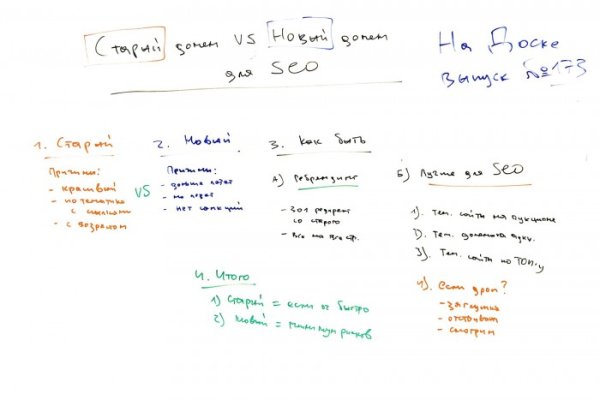 Старый домен VS Новый домен
для SEO
На Доске
выпуск №173
1. Старый
Причины:
- красивый
- по тематике
с ссылками
- с возрастом
VS
2. Новый
Причины:
- дольше
- не
- нет санкций
3. Как быть
А) Ребрендинг
- 301 редирект
со старого
- все на все стр.
Б) Лучше для SEO
1). Тем. сайты на аукционе
2). Тем. домены аукц.
3). Тем. сайты по ТОП-у
4). если дроп?
- заглушка
- отстоится
- смотрим
4. Итого
1) Старый = если ок быстро
2) Новый = минимум рисков